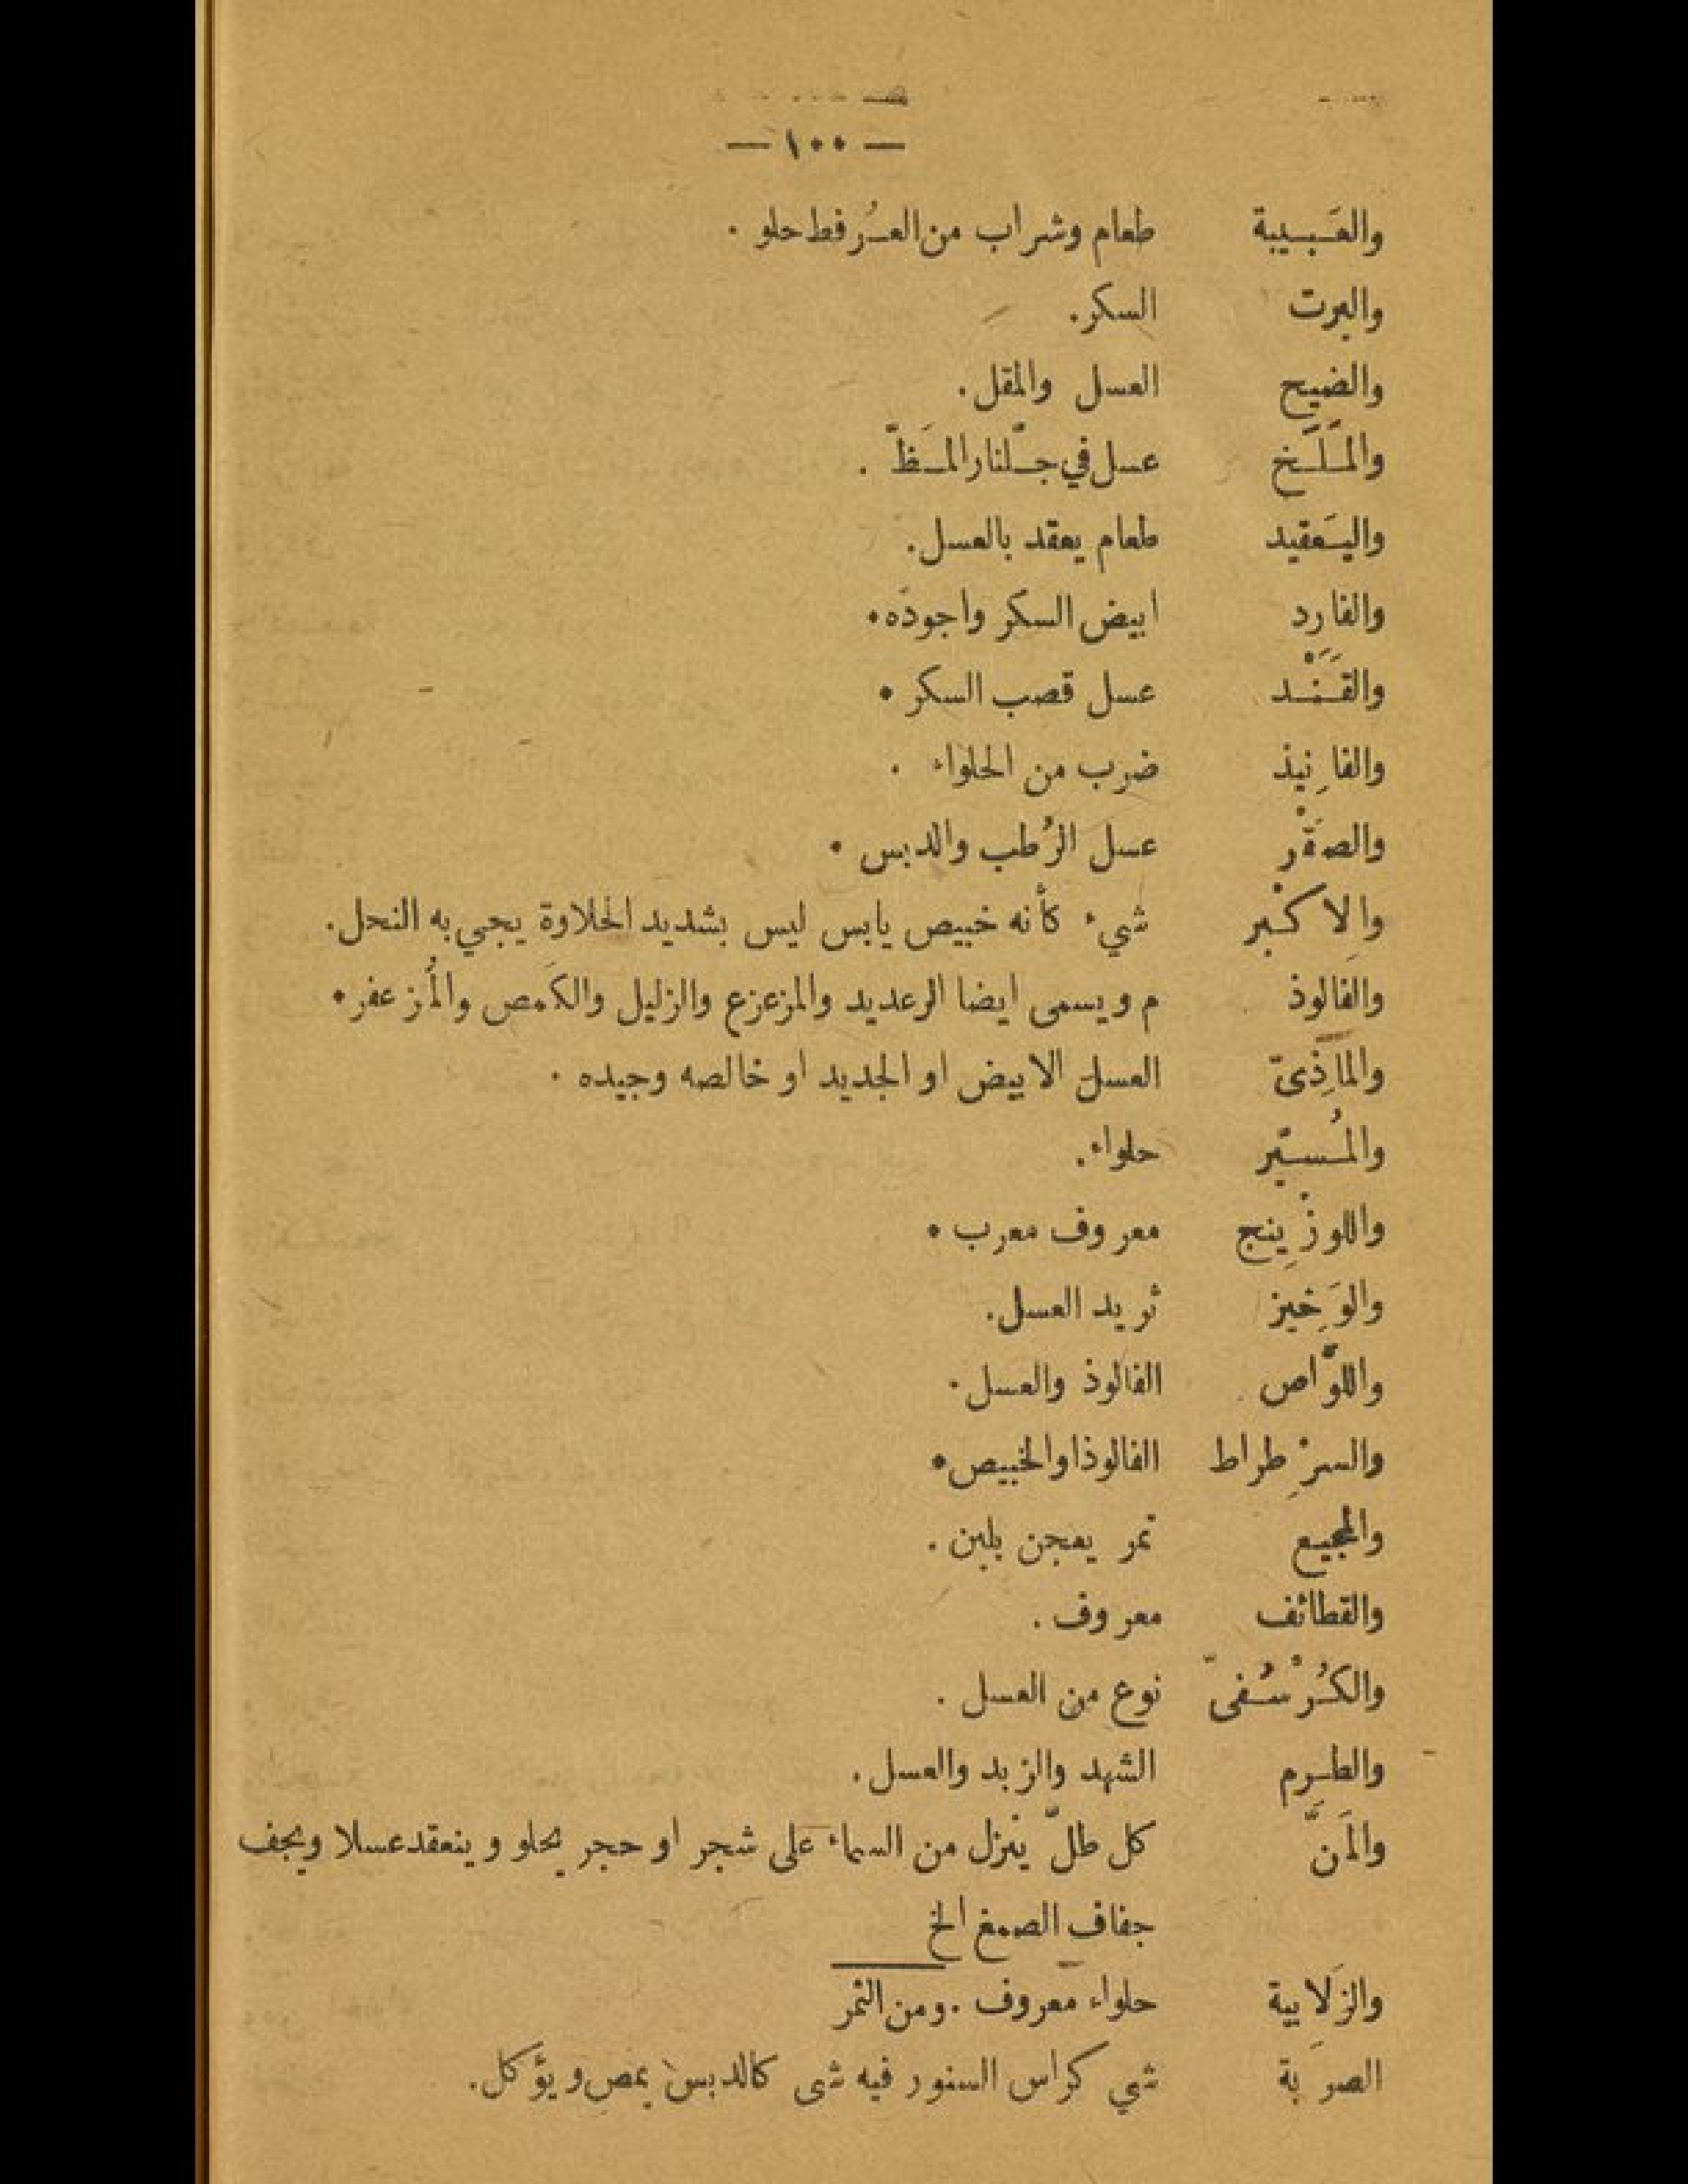 — ١٠٠ —
والغَبيبة طعام وشراب من العُرفط حلو .
والبرت السكر.
والضيح العسل والمقل.
والمَلَخ عسل في جلّنار المَظّ .
واليَعقيد طعام يعقد بالعسل.
والفارِد ابيض السكر واجوده.
والقَنْد عسل قصب السكر .
والفانِيذ ضرب من الحلواء .
والصقْر عسل الرُطب والدبس .
والاِكْبر شيء كأنه خبيص يابس ليس بشديد الحلاوة يجيي به النحل.
والفالوذ م ويسمى ايضا الرعديد والمزعزع والزليل والكَمص والمُزعفر.
والمَاذِىّ العسل الابيض او الجديد او خالصه وجيده .
والمُسيّر حلواء.
واللوْزِينج معروف معرب .
والوَخِيز ثريد العسل.
واللوَّاص الفالوذ والعسل.
والسرِْطراط الفالوذ او الخبيص.
والمجيع تمر يعجن بلبن .
والقطائف معروف .
والكُرْسُفىّ نوع من العسل .
والطِرم الشهد والزبد والعسل.
والمَنّ كل طلّ ينزل من السماء على شجر او حجر يحلو وينعقد عسلا ويجف
جفاف الصمغ الخ
والزَلابية حلواء معروف . ومن الثمر
الصرَبة شي كراس السنور فيه شى كالدبس يمص ويؤكل.